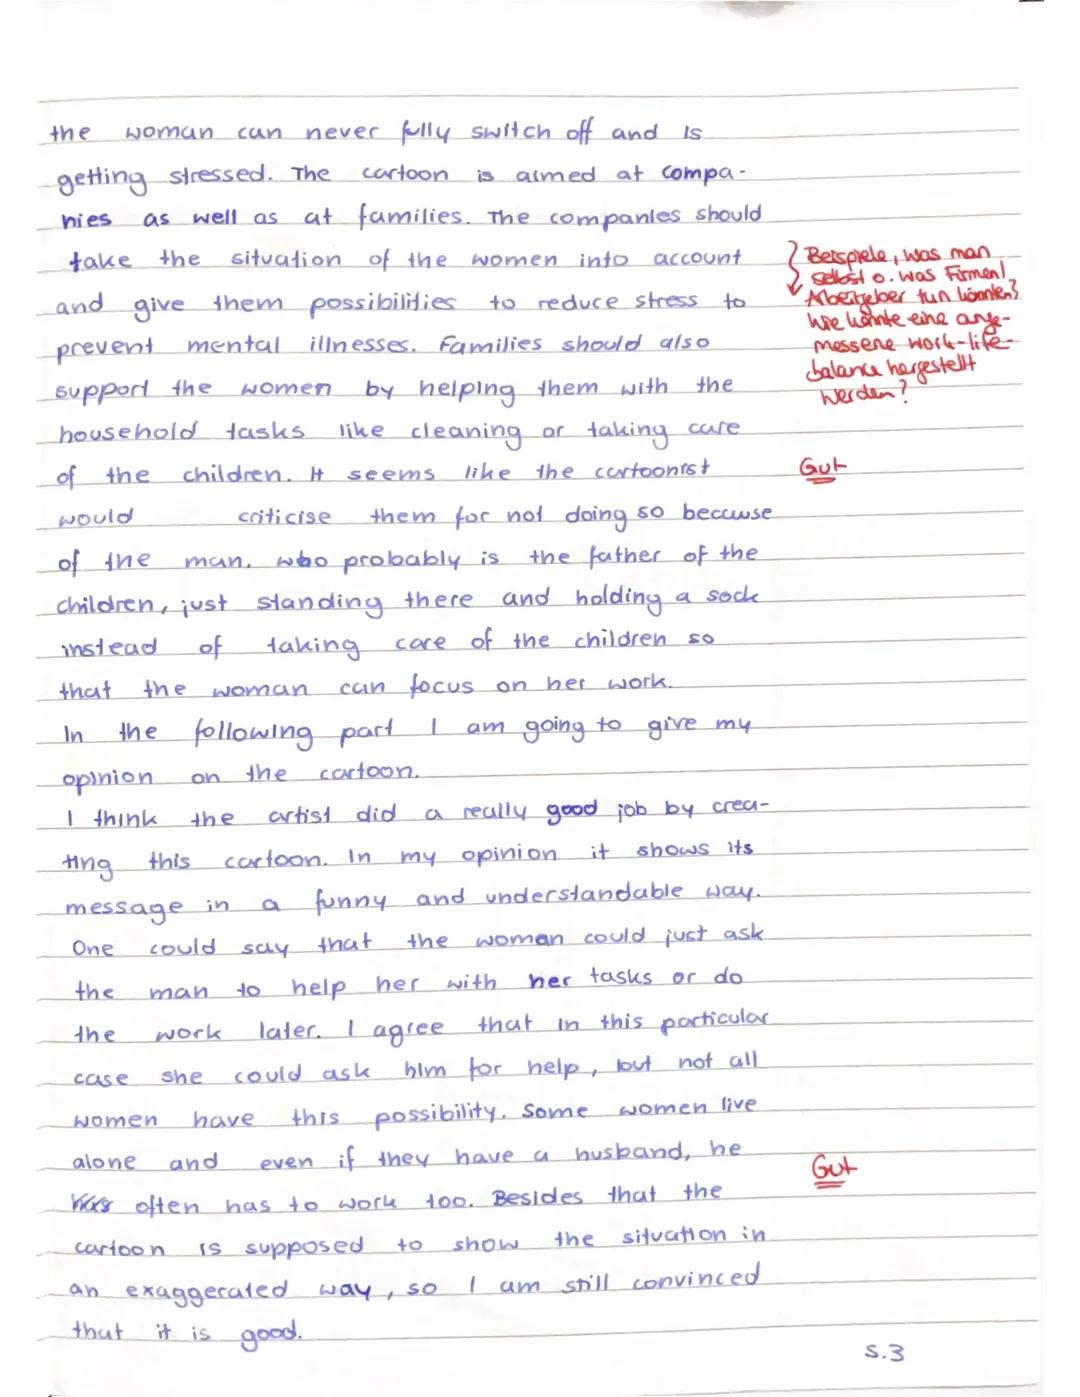 the woman can never fully switch off and is
getting stressed. The cartoon is aimed at compa-
nies as well as at families. The companies should
take the situation of the women into account
and give them possibilities to reduce stress to
prevent mental illnesses. Families should also
support the women by helping them with the
household tasks like cleaning or taking care
of the children. It seems like the cartoonist
would criticise them for not doing so because
of the man, who probably is the father of the
children, just standing there and holding a sock
instead of taking care of the children so
that the woman can focus on her work.
In the following part I am going to give my
opinion on the cartoon.
I think the artist did a really good job by crea-
ting this cartoon. In my opinion it shows its
message in a funny and understandable way.
One could say that the woman could just ask
the man to help her with her tasks or do
the work later. I agree that in this particular
case she could ask him for help, but not all
women have this possibility. Some women live
alone and even if they have a husband, he
often has to work too. Besides that the
cartoon is supposed to show the situation in
an exaggerated way, so I am still convinced
that it is good.
Beispiele, was man
selbst o. was Firmen/
Arbeitgeber tun könnten?
Wie könnte eine ange-
messene work-life-
balance hergestellt
werden?
Gut
Gut
S.3